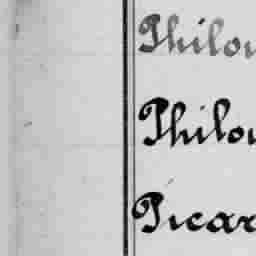 Philou
Philou
Picar